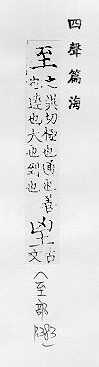 四聲篇海
至
之異切極也通也善
也達也大也到也
古
文
(至部383)